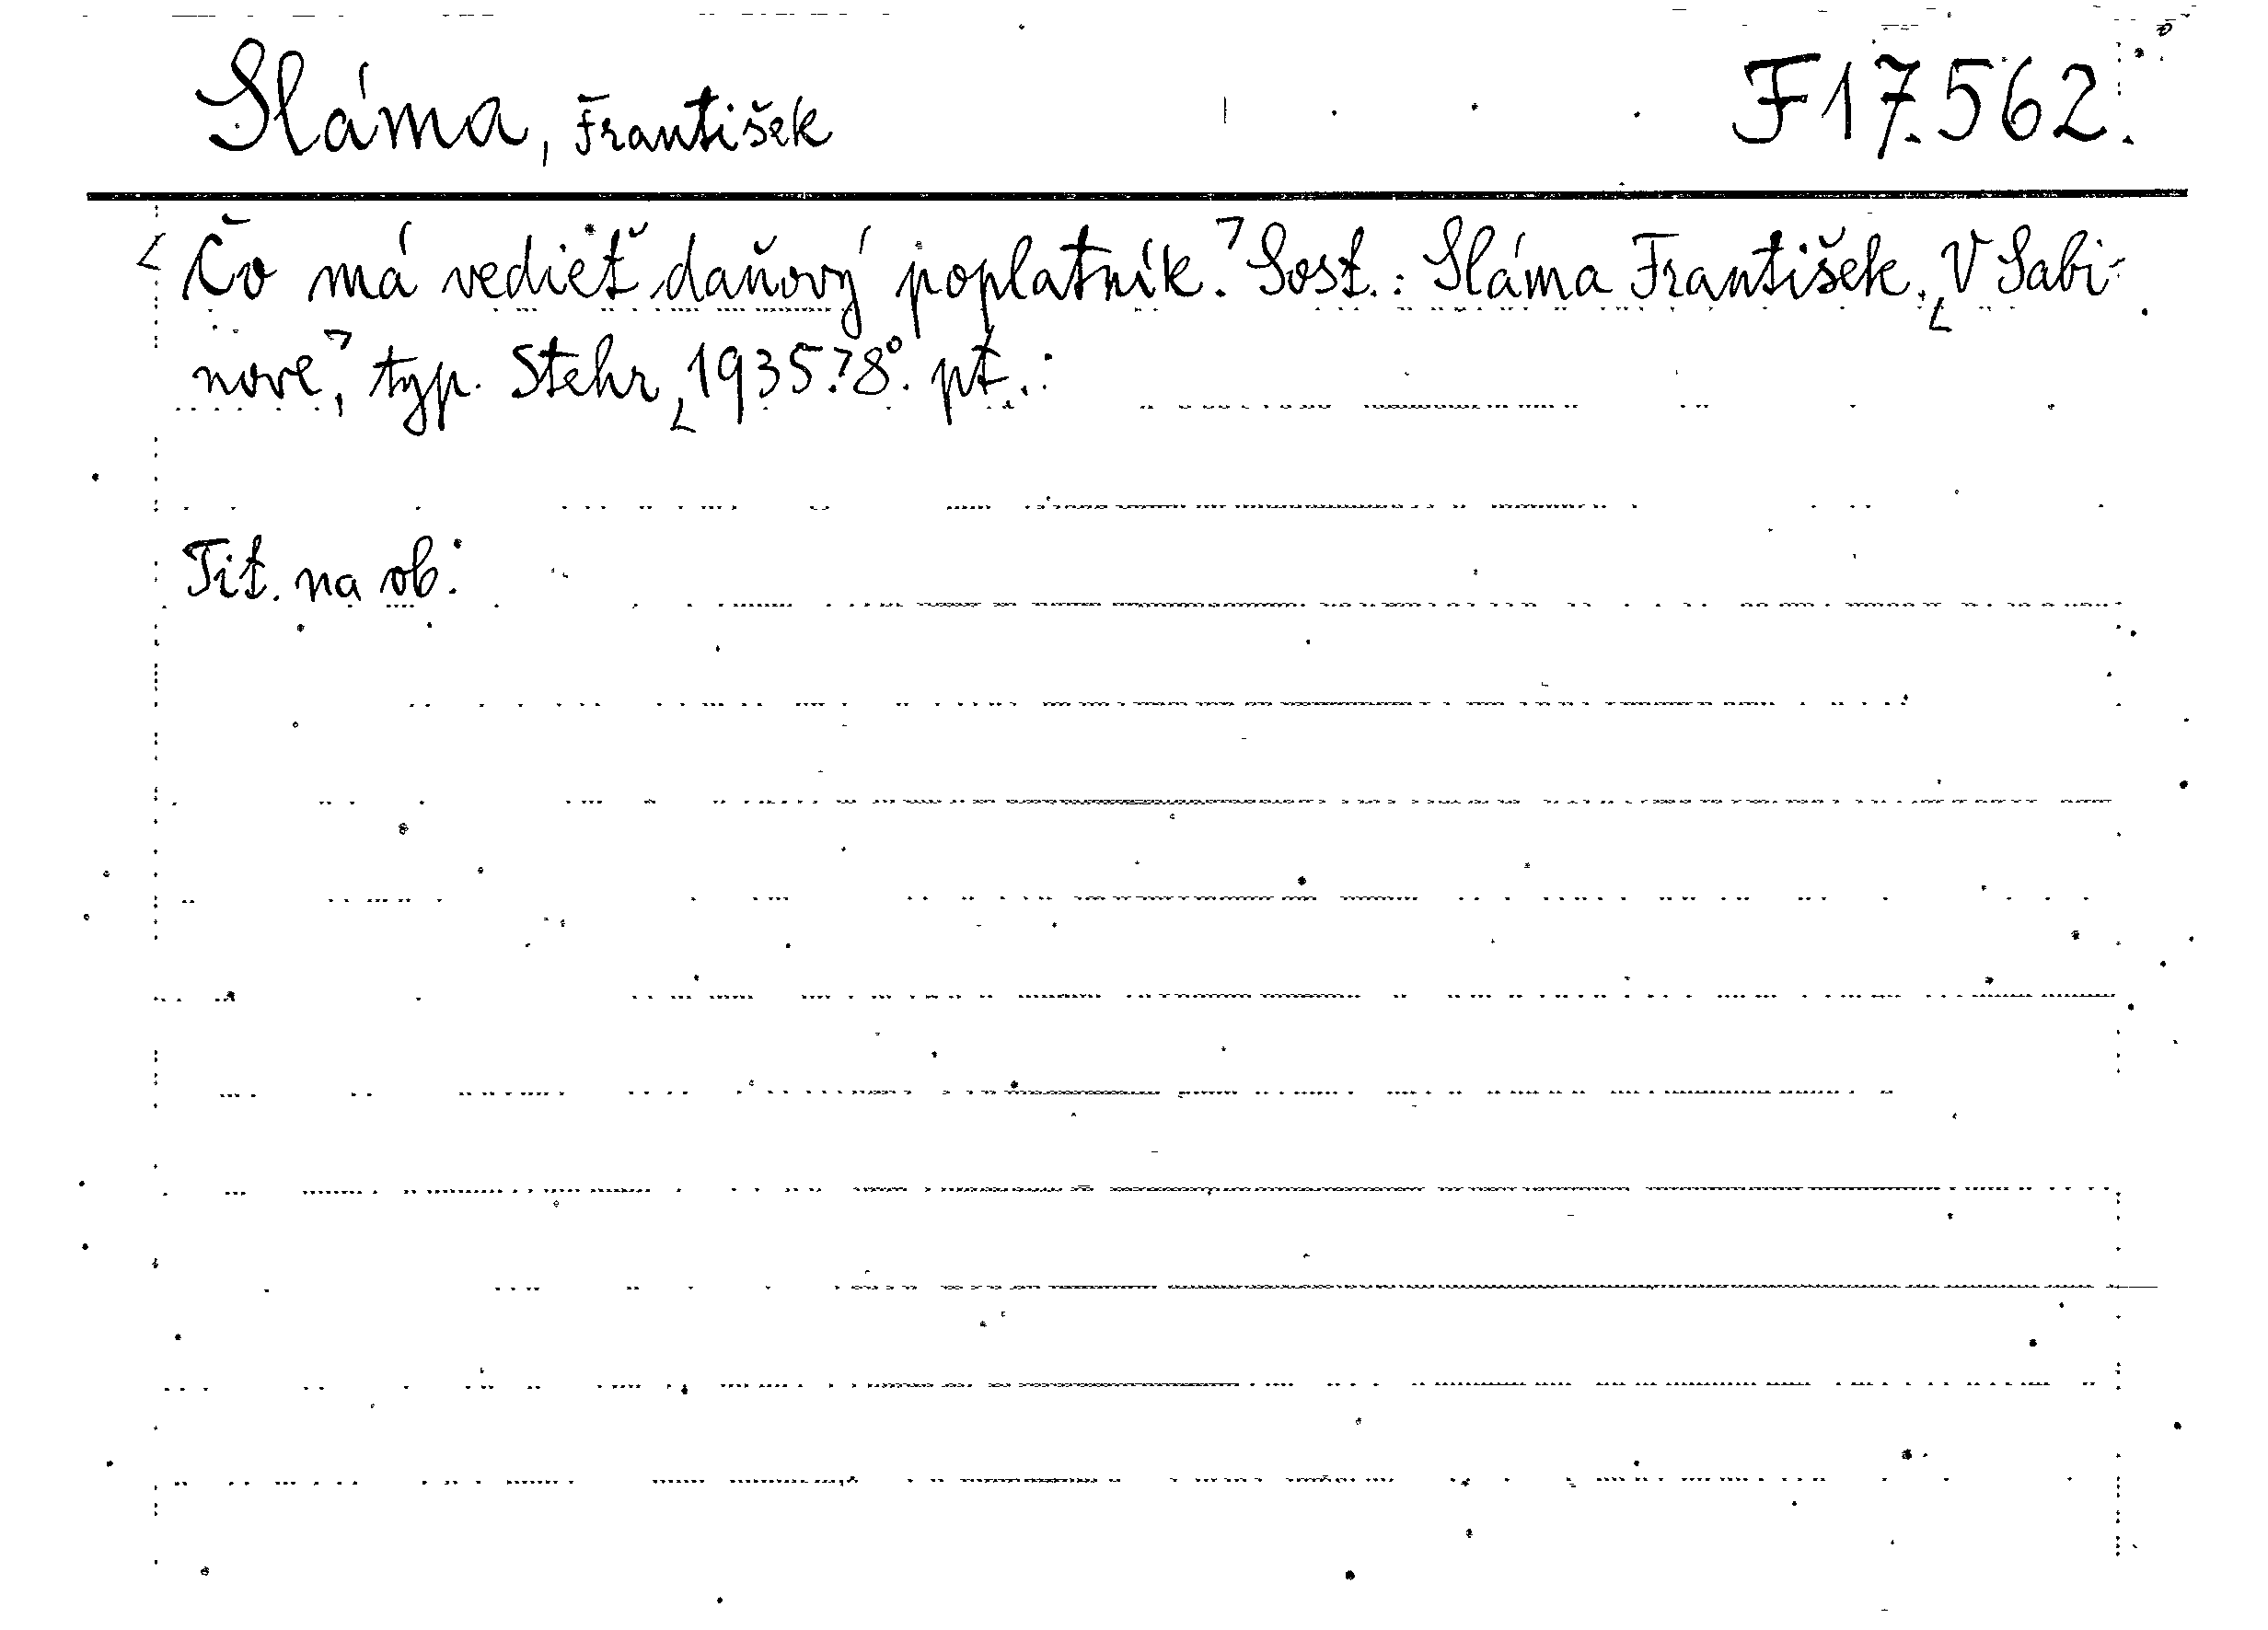 Sláma, František F 17.562.
⌊Čo má vedieť daňový poplatník.⌉ Sost.: Sláma František. ⌊V Sabi-
nove⌉, typ. Stehr, ⌊1935.⌉ 8°. pt..:
Tit. na ob.